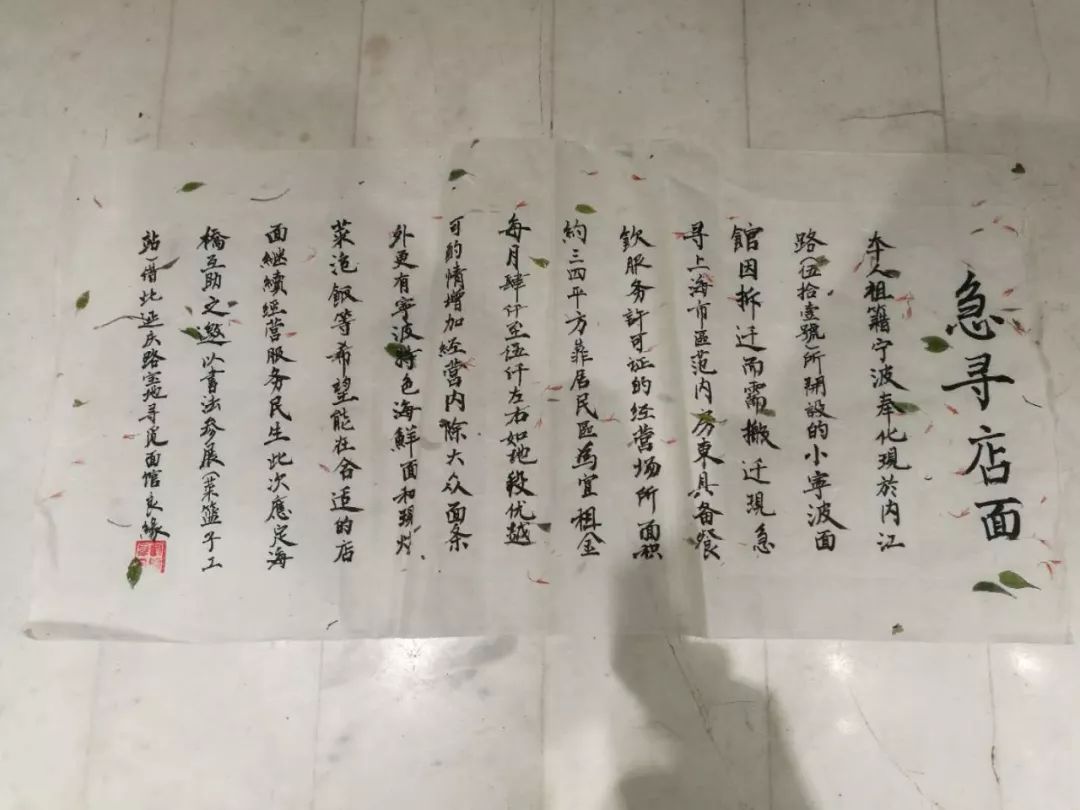 急寻店面
本人祖籍宁波奉化現於内江
路(伍拾壹號)所開設的小寧波面
館因拆迁而需搬迁現急
寻上海市區范内房東具备餐
飲服务許可证的经营场所面积
約三四平方靠居民區為宜租金
每月肆仟至伍仟左右如地段优越
可酌情增加经营内除大众面条
外更有寧波特色海鮮面和現炒
菜泡飯等希望能在合适的店
面継续经营服务民生此次應定海
橋互助之邀以書法参展(菜篮子工
站)借此延庆路宝地寻觅面馆良缘